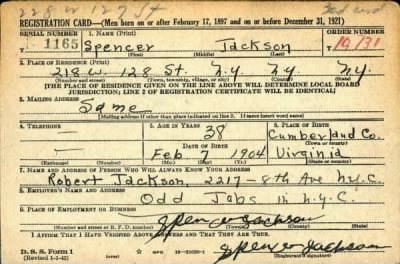 228 W 127 St
REGISTRATION CARD—(Men born on or after February 17, 1897 and on or before December 31, 1921)
SERIAL NUMBER 1. NAME (Print) ORDER NUMBER
1165 Spencer Jackson 10131
(First) (Middle) (Last)
2. PLACE OF RESIDENCE (Print)
218 W. 128 St. N.Y. N.Y. NY.
(Number and street) (Town, township, village, or city) (County) (State)
[THE PLACE OF RESIDENCE GIVEN ON THE LINE ABOVE WILL DETERMINE LOCAL BOARD
JURISDICTION; LINE 2 OF REGISTRATION CERTIFICATE WILL BE IDENTICAL]
3. MAILING ADDRESS
Same
[Mailing address if other than place indicated on line 2. If same insert word same]
4. TELEPHONE 5. AGE IN YEARS 6. PLACE OF BIRTH
— 38 Cumberland Co.
DATE OF BIRTH (Town or county)
— Feb 7 1904 Virginia
(Exchange) (Number) (Mo.) (Day) (Yr.) (State or country)
7. NAME AND ADDRESS OF PERSON WHO WILL ALWAYS KNOW YOUR ADDRESS
Robert Jackson, 2217-8th Ave N.Y.C.
8. EMPLOYER'S NAME AND ADDRESS
Odd Jobs in N.Y.C.
9. PLACE OF EMPLOYMENT OR BUSINESS
Spencer Jackson
(Number and street or R. F. D. number) (Town) (County) (State)
I AFFIRM THAT I HAVE VERIFIED ABOVE ANSWERS AND THAT THEY ARE TRUE.
D. S. S. Form 1
(Revised 1-1-42) (over) Spencer Jackson